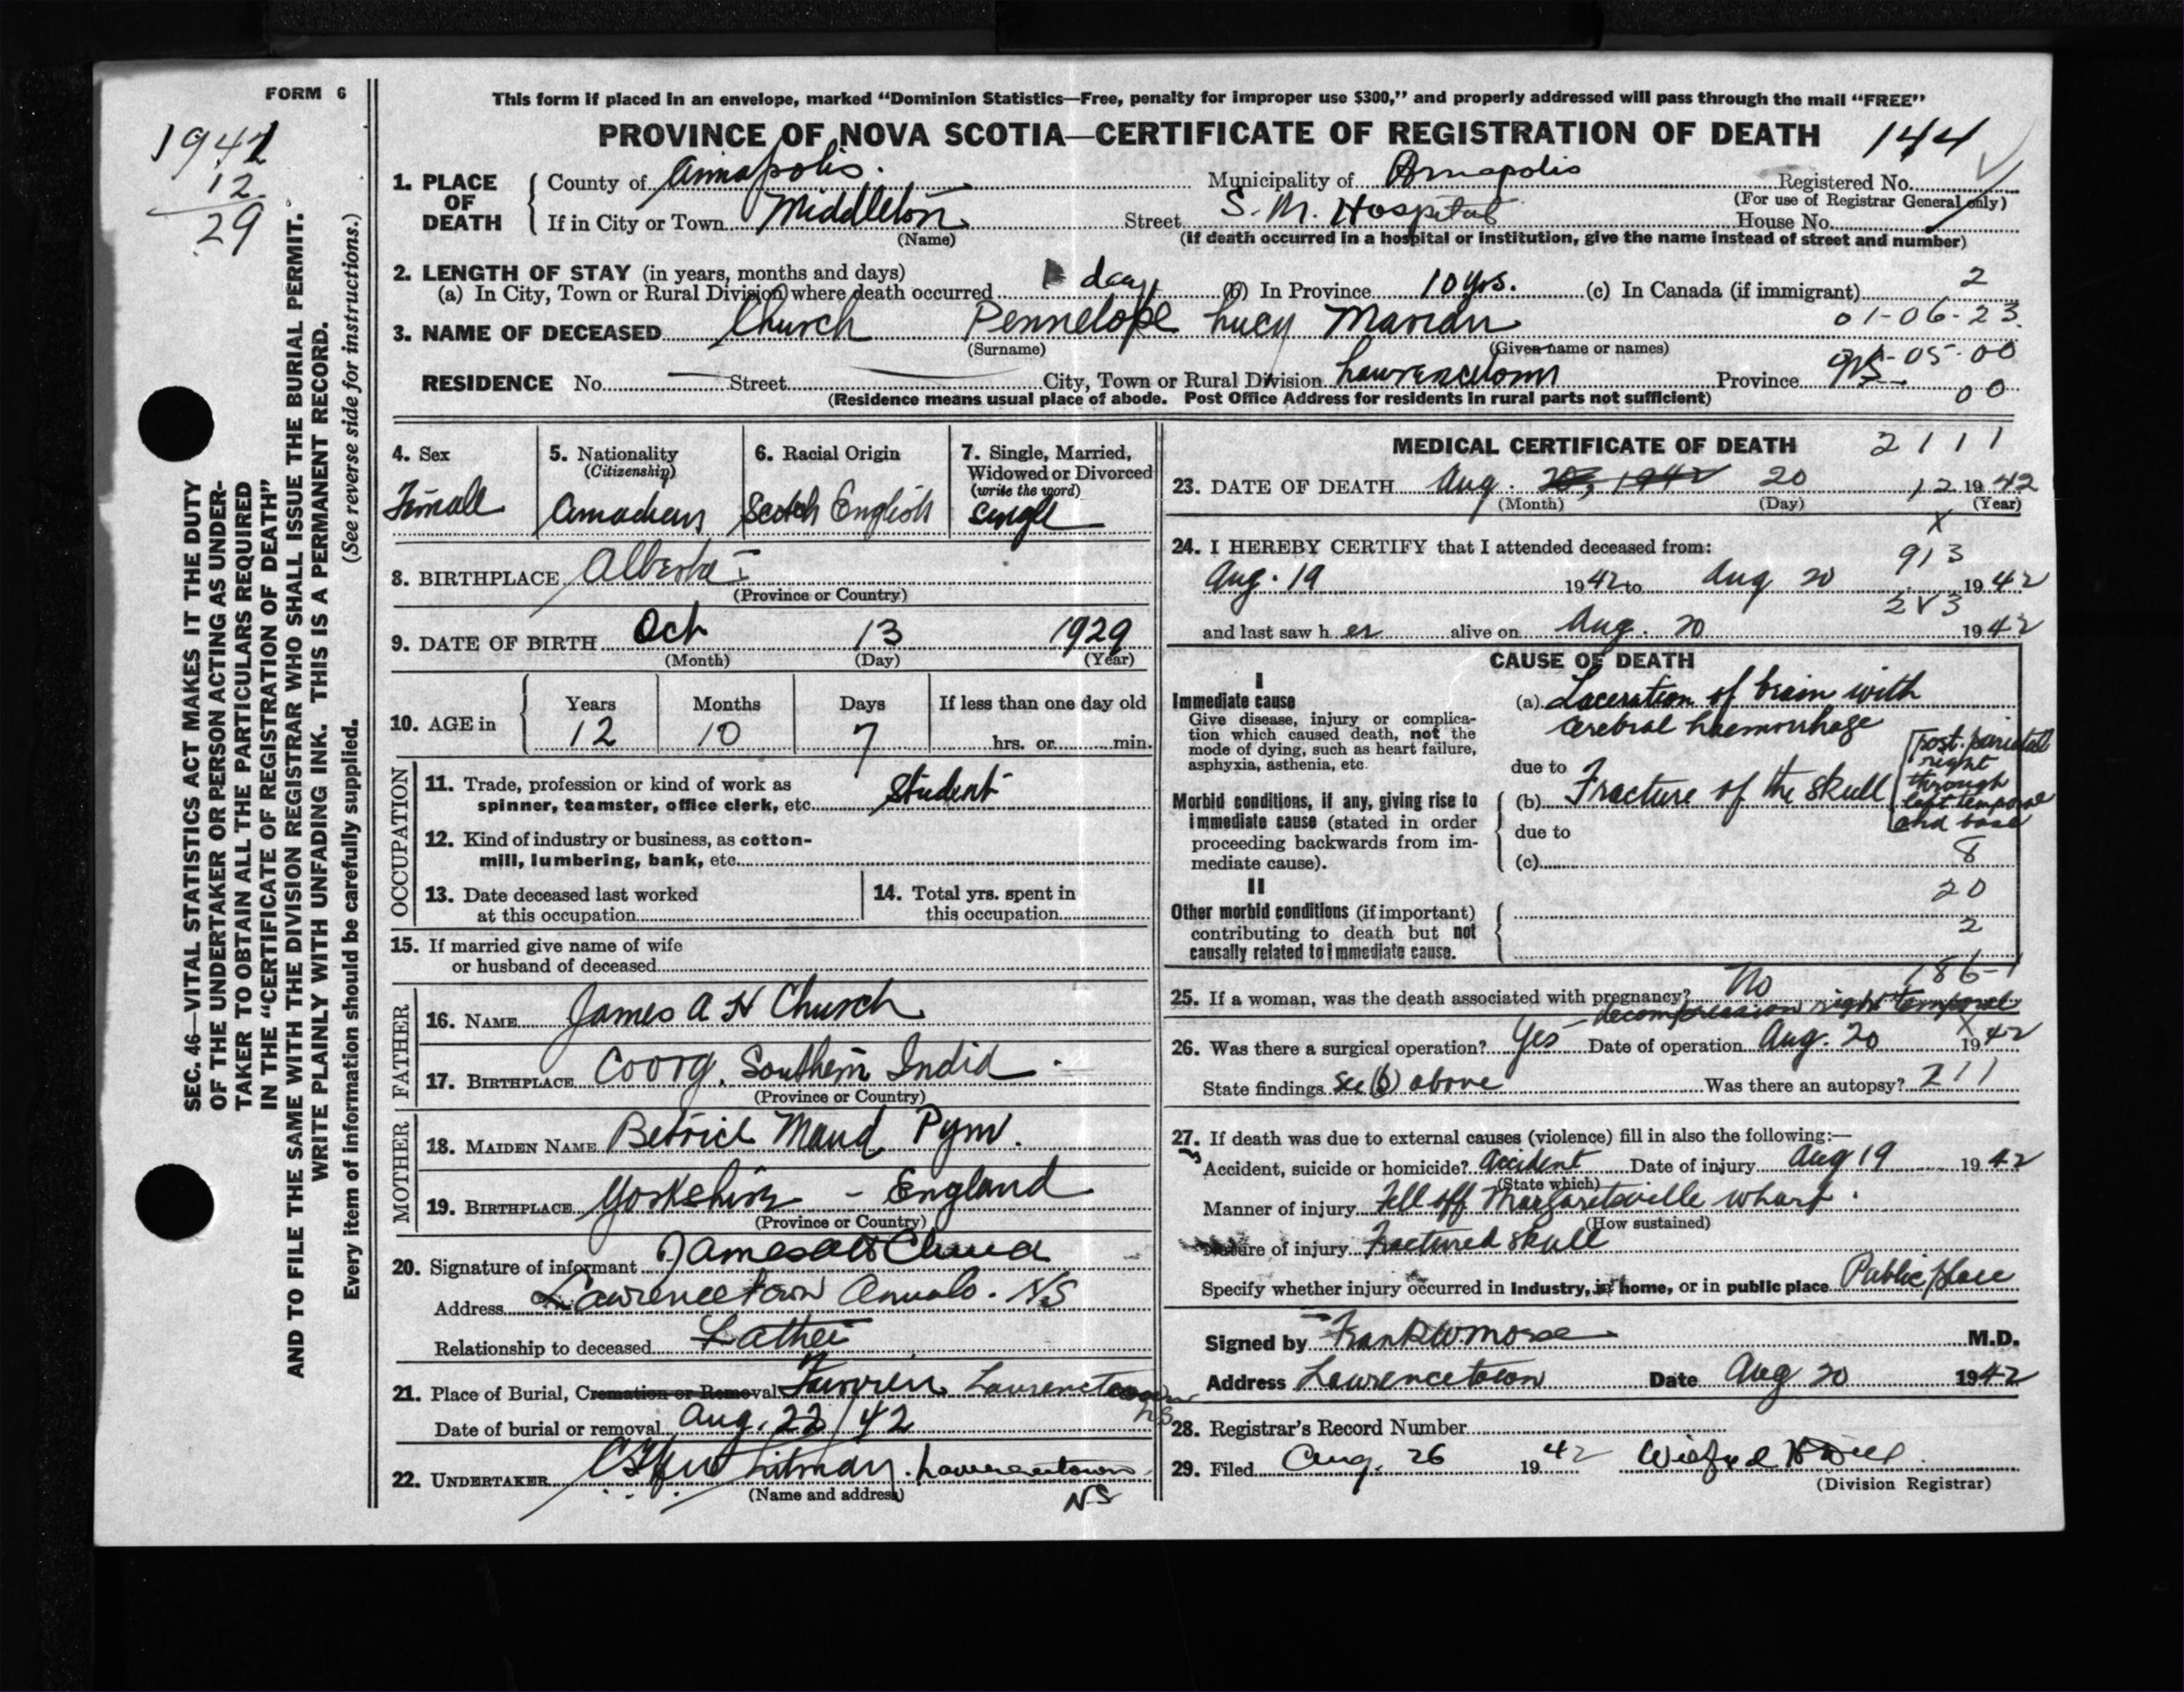 FORM 6
This form if placed in an envelope, marked “Dominion Statistics—Free, penalty for improper use $300,” and properly addressed will pass through the mail “FREE”
PROVINCE OF NOVA SCOTIA—CERTIFICATE OF REGISTRATION OF DEATH 144
12
29
SEC. 46—VITAL STATISTICS ACT MAKES IT THE DUTY
OF THE UNDERTAKER OR PERSON ACTING AS UNDER-
TAKER TO OBTAIN ALL THE PARTICULARS REQUIRED
IN THE “CERTIFICATE OF REGISTRATION OF DEATH”
AND TO FILE THE SAME WITH THE DIVISION REGISTRAR WHO SHALL ISSUE THE BURIAL PERMIT.
WRITE PLAINLY WITH UNFADING INK. THIS IS A PERMANENT RECORD.
Every item of information should be carefully supplied. (See reverse side for instructions.)
1. PLACE OF DEATH
County of Annapolis. Municipality of Annapolis Registered No.
(For use of Registrar General only)
If in City or Town Middleton Street S. M. Hospital House No.
(Name) (If death occurred in a hospital or institution, give the name instead of street and number)
2. LENGTH OF STAY (in years, months and days)
(a) In City, Town or Rural Division where death occurred 1 day (b) In Province 10 yrs. (c) In Canada (if immigrant) 2
3. NAME OF DECEASED Church Pennelope Lucy Marian 01-06-23
(Surname) (Given name or names)
RESIDENCE No. — Street City, Town or Rural Division Lawrencetown Province NS 05-00
(Residence means usual place of abode. Post Office Address for residents in rural parts not sufficient) 00
4. Sex 5. Nationality 6. Racial Origin 7. Single, Married,
(Citizenship) Widowed or Divorced
(write the word)
Female Canadian Scotch English Single
8. BIRTHPLACE Alberta
(Province or Country)
9. DATE OF BIRTH Oct 13 1929
(Month) (Day) (Year)
10. AGE in Years Months Days If less than one day old
12 10 7 hrs. or min.
OCCUPATION
11. Trade, profession or kind of work as
spinner, teamster, office clerk, etc. Student
12. Kind of industry or business, as cotton-
mill, lumbering, bank, etc.
13. Date deceased last worked
at this occupation
14. Total yrs. spent in
this occupation
15. If married give name of wife
or husband of deceased
FATHER
16. NAME James A H Church
17. BIRTHPLACE Coorg, Southern India
(Province or Country)
MOTHER
18. MAIDEN NAME Betrice Maud Pym.
19. BIRTHPLACE Yorkshire - England
(Province or Country)
20. Signature of informant James A H Church
Address Lawrencetown Anna Co. NS
Relationship to deceased Father
21. Place of Burial, Cremation or Removal Lawrencetown NS
Date of burial or removal Aug. 22/42
22. UNDERTAKER Whitman. Lawrencetown
(Name and address) NS
MEDICAL CERTIFICATE OF DEATH 2111
23. DATE OF DEATH Aug. 20, 1942 20 12 1942
(Month) (Day) (Year)
x
24. I HEREBY CERTIFY that I attended deceased from: 913
Aug. 19 1942 to Aug 20 1942
and last saw her alive on Aug. 20 1942
CAUSE OF DEATH
I
Immediate cause
Give disease, injury or complica-
tion which caused death, not the
mode of dying, such as heart failure,
asphyxia, asthenia, etc.
(a) Laceration of brain with
cerebral haemorrhage
due to
Morbid conditions, if any, giving rise to
immediate cause (stated in order
proceeding backwards from im-
mediate cause).
(b) Fracture of the skull
post. parietal
right
through
left temporal
and base
due to
(c) 8
20
II
Other morbid conditions (if important)
contributing to death but not
causally related to immediate cause.
2
186-1
25. If a woman, was the death associated with pregnancy? No
decompression right temporal
26. Was there a surgical operation? Yes Date of operation Aug. 20 1942
State findings See (b) above Was there an autopsy? 211
27. If death was due to external causes (violence) fill in also the following:—
Accident, suicide or homicide? Accident Date of injury Aug 19 1942
(State which)
Manner of injury Fell off Margaretsville wharf.
(How sustained)
Nature of injury Fractured skull
Specify whether injury occurred in Industry, in home, or in public place Public place
Signed by Frank W Morse M.D.
Address Lawrencetown Date Aug 20 1942
28. Registrar’s Record Number
29. Filed Aug. 26 1942
(Division Registrar)